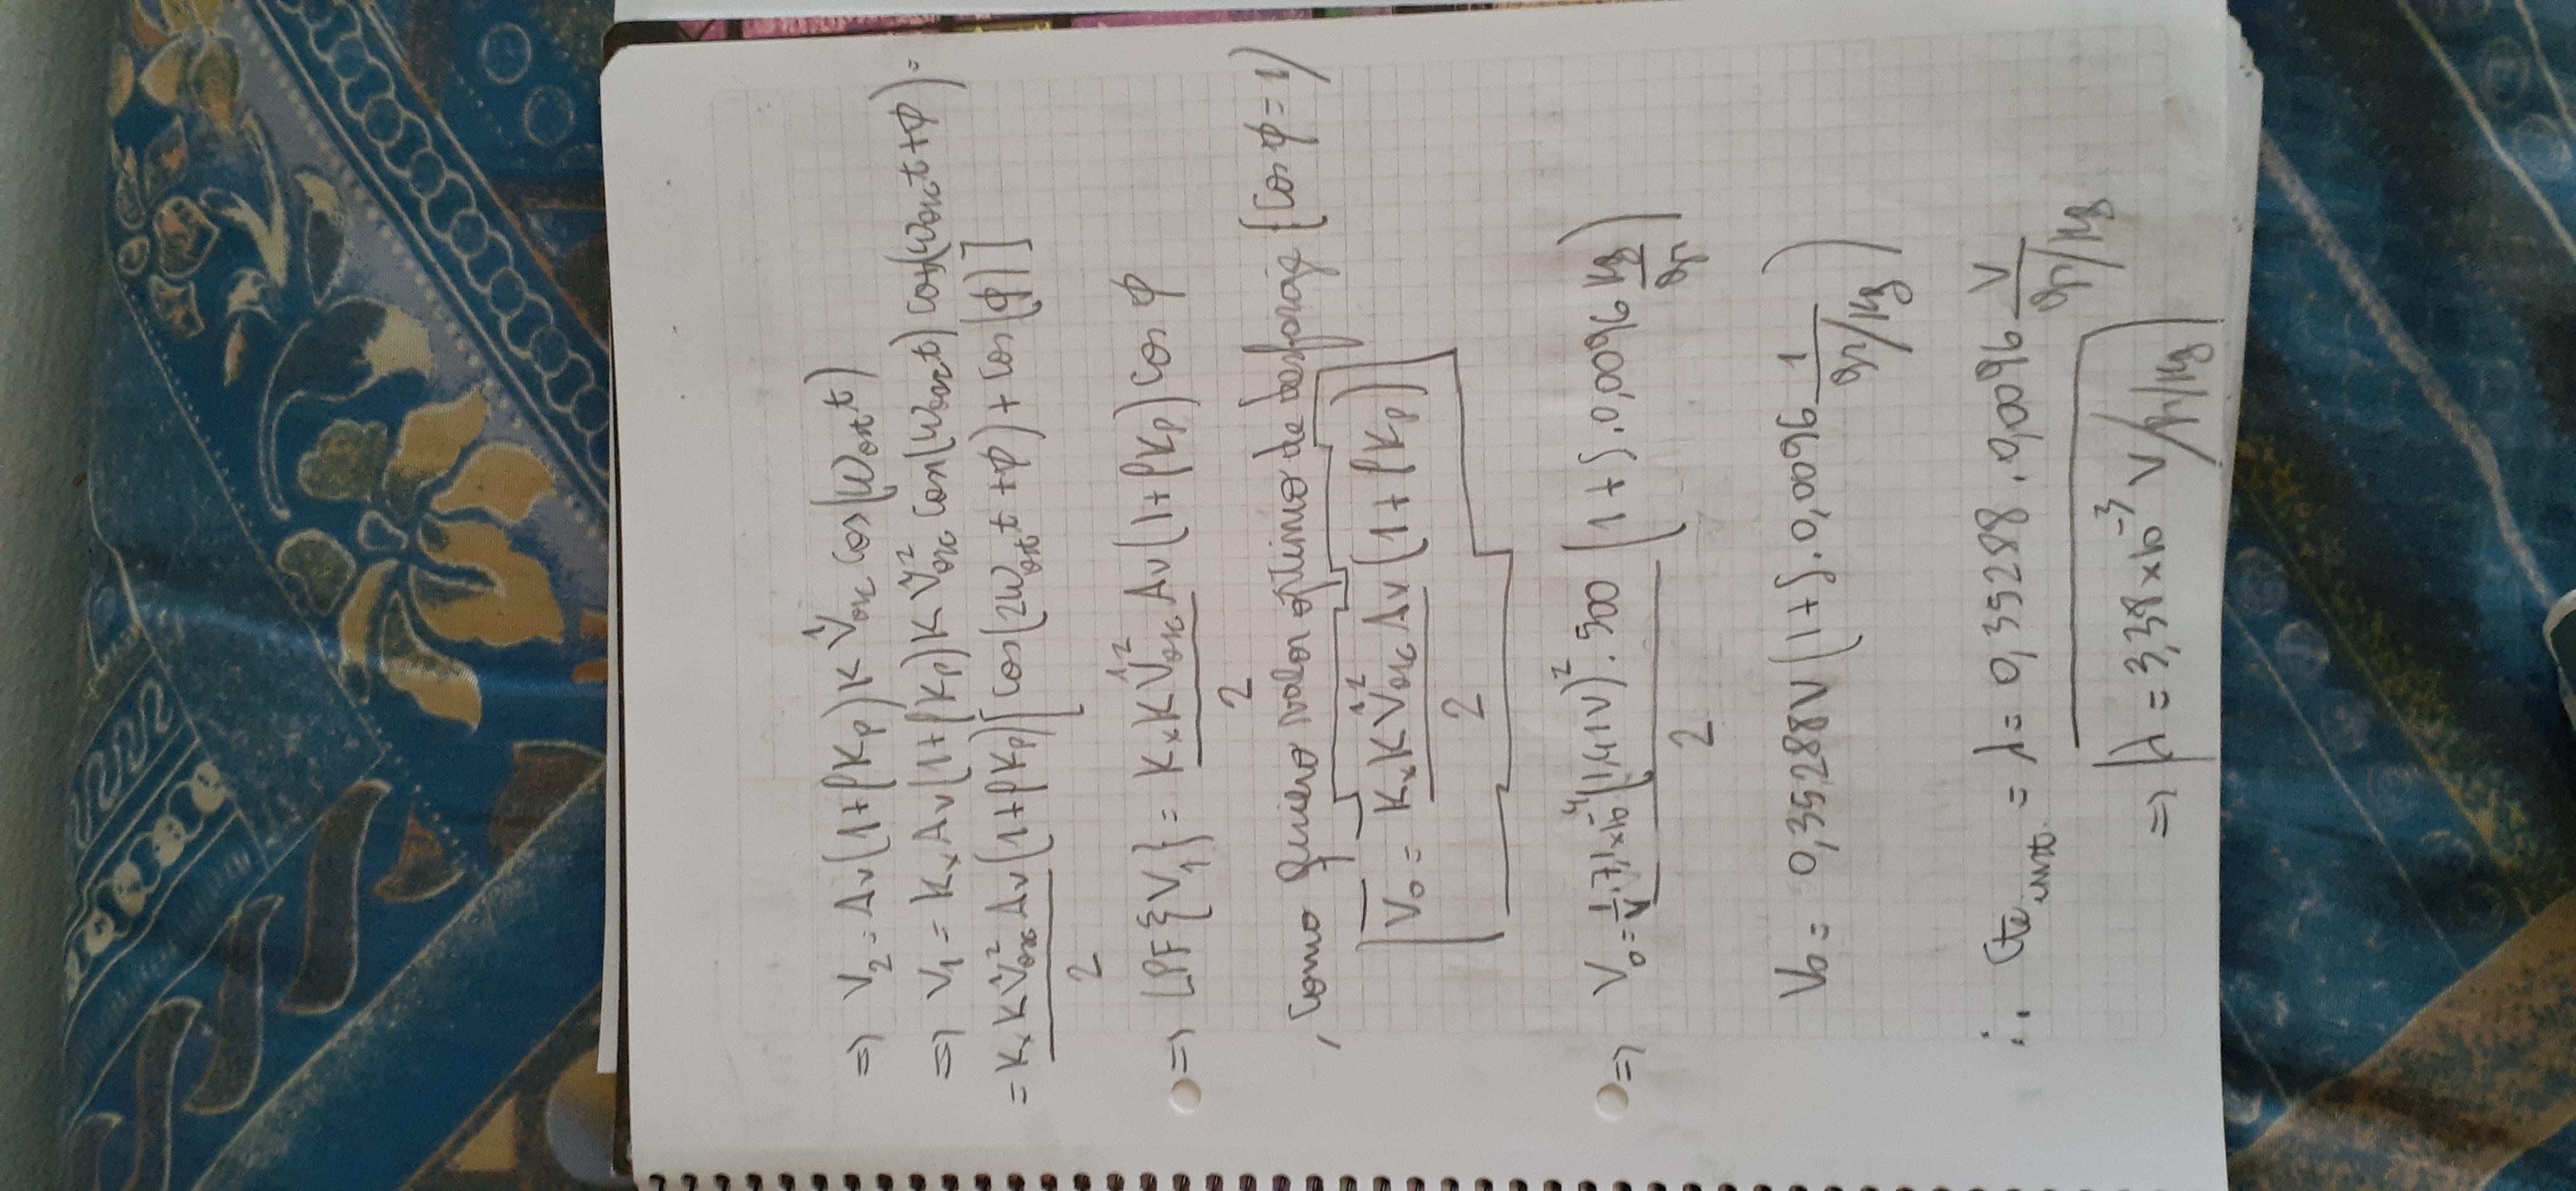 => V₂ = Av(1+ρKp)K V̂osc cos(ωosc t)
=> V₁ = Kx Av(1+ρKp)K V̂²osc cos(ωosc t) cos(ωosc t+φ) =
= Kx K V̂²osc Av/2 (1+ρKp)[cos(2ωosc t +φ) + cos(φ)]
=> LPF{V₁} = Kx K V̂²osc Av/2 (1+ρKp) cos φ
, como quiero valor óptimo de desfasaje (cos φ = 1)
V₀ = Kx K V̂²osc Av/2 (1+ρKp)
=> V₀ = 1/V . 7,1×10⁻⁴ (1,41V)² . 500/2 (1 + ρ . 0,0096 Kg/gr)
V₀ = 0,35288V (1+ρ. 0,0096 1/gr/Kg)
∴ Cte inst. = λ = 0,35288 . 0,0096 V/gr/Kg
=> λ = 3,38×10⁻³ V/gr/Kg